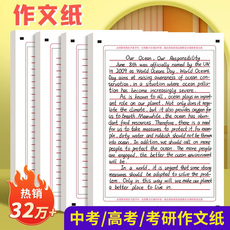 作文纸
Our Ocean, Our Responsibility
June 8th was officially named by the UN
in 2009 as World Oceans Day. World Oceans
Day aims at raising awareness of ocean con-
servation, in a situation where ocean pollution
has become increasingly severe.
As is known to all, ocean plays an import-
ant role on our planet. Not only does it regu-
late the climate, but it also provides oxygen for
us to breath. Meanwhile, the ocean has abun-
dant food resources. Therefore, there is a need
for us to take measures to protect it by exam-
ple, dirty water and rubbish should not be thrown
into the ocean. In addition, we should call on more
people to protect the ocean. The more people
are engaged, the better the ocean environment
will be.
In a word, it is urgent that some steps
measures should be adopted to solve the prob-
lem. Only in this way will we make our planet
a better place to live in.
热销
32万+
中考/高考/考研作文纸